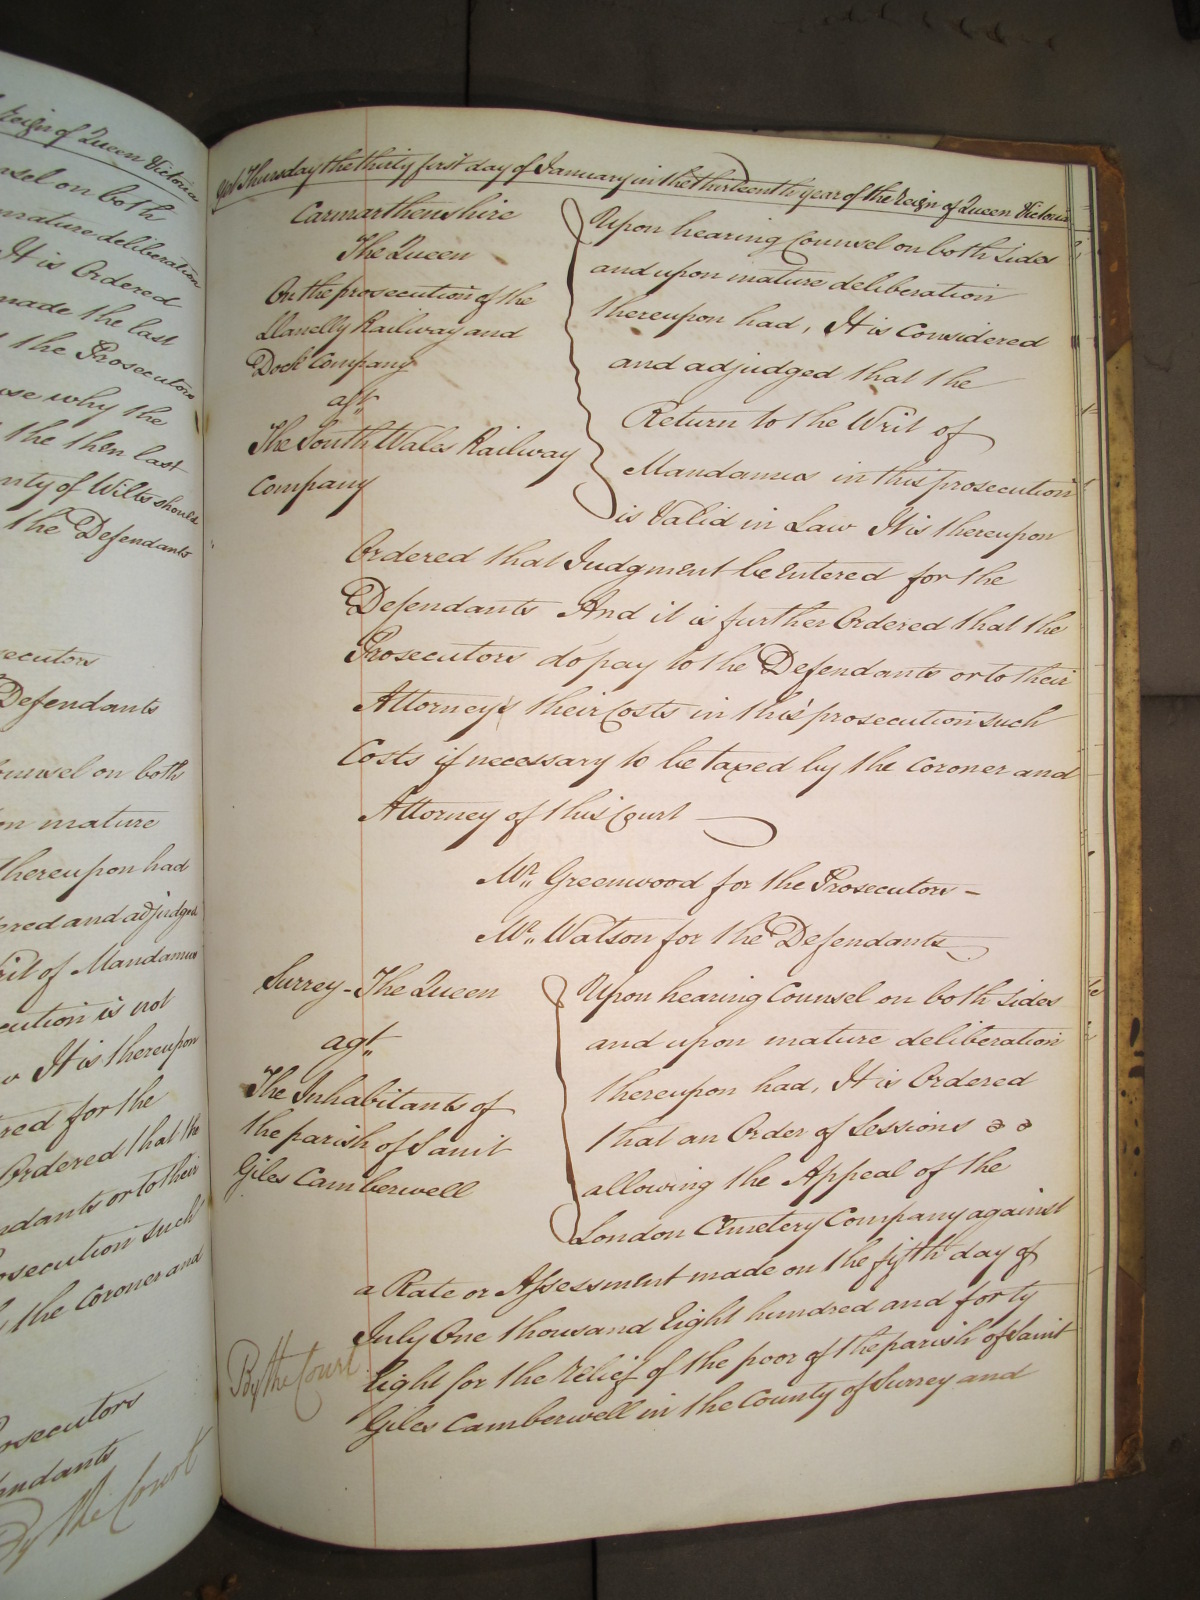 Reign of Queen Victoria
nsel on both
mature deliberation
It is Ordered
made the last
the Prosecutors
use why the
the then last
nty of Wilts should
the Defendants
secutors
Defendants
ounsel on both
on mature
thereupon had
ered and adjudged
rit of Mandamus
cution is not
It is thereupon
red for the
Ordered that the
ndants or to their
osecution such
the Coroner and
osecutors
endants
By the Court
Yet Thursday the thirty first day of January in the thirteenth year of the Reign of Queen Victoria
Carmarthenshire
The Queen
On the prosecution of the
Llanelly Railway and
Dock Company
agt
The South Wales Railway
Company
Upon hearing Counsel on both sides
and upon mature deliberation
thereupon had, It is Considered
and adjudged that the
Return to the Writ of
Mandamus in this prosecution
is Valid in Law It is thereupon
Ordered that Judgment be Entered for the
Defendants And it is further Ordered that the
Prosecutors do pay to the Defendants or to their
Attorneys their Costs in this prosecution such
Costs if necessary to be taxed by the Coroner and
Attorney of this Court
Mr. Greenwood for the Prosecutors –
Mr. Watson for the Defendants
Surrey – The Queen
agt
The Inhabitants of
the parish of Saint
Giles Camberwell
Upon hearing Counsel on both sides
and upon mature deliberation
thereupon had, It is Ordered
that an Order of Sessions
allowing the Appeal of the
London Cemetery Company against
a Rate or Assessment made on the fifth day of
July One thousand Eight hundred and forty
Eight for the Relief of the poor of the parish of Saint
Giles Camberwell in the County of Surrey and
By the Court